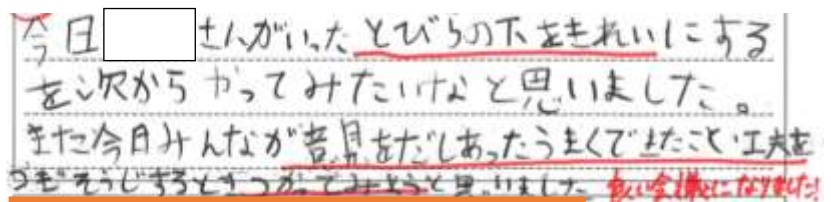 今日 さんがいったとびらの下をきれいにする
を次からやってみたいなと思いました。
また今日みんなが意見をだしあったうまくできたこと、工夫を
つぎそうじするときつかってみようと思いました 良い会議になりました!